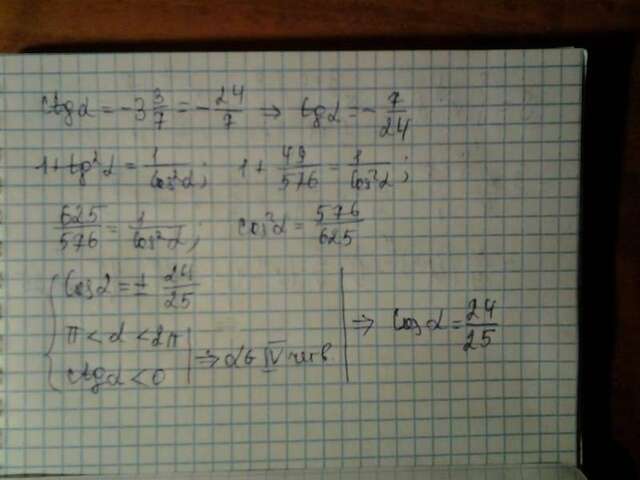 ctgα = -3 3/7 = -24/7 ⇒ tgα = -7/24
1 + tg²α = 1/cos²α; 1 + 49/576 = 1/cos²α;
625/576 = 1/cos²α; cos²α = 576/625
cosα = ± 24/25
π < α < 2π
ctgα < 0 ⇒ α ∈ IV четв ⇒ cosα = 24/25